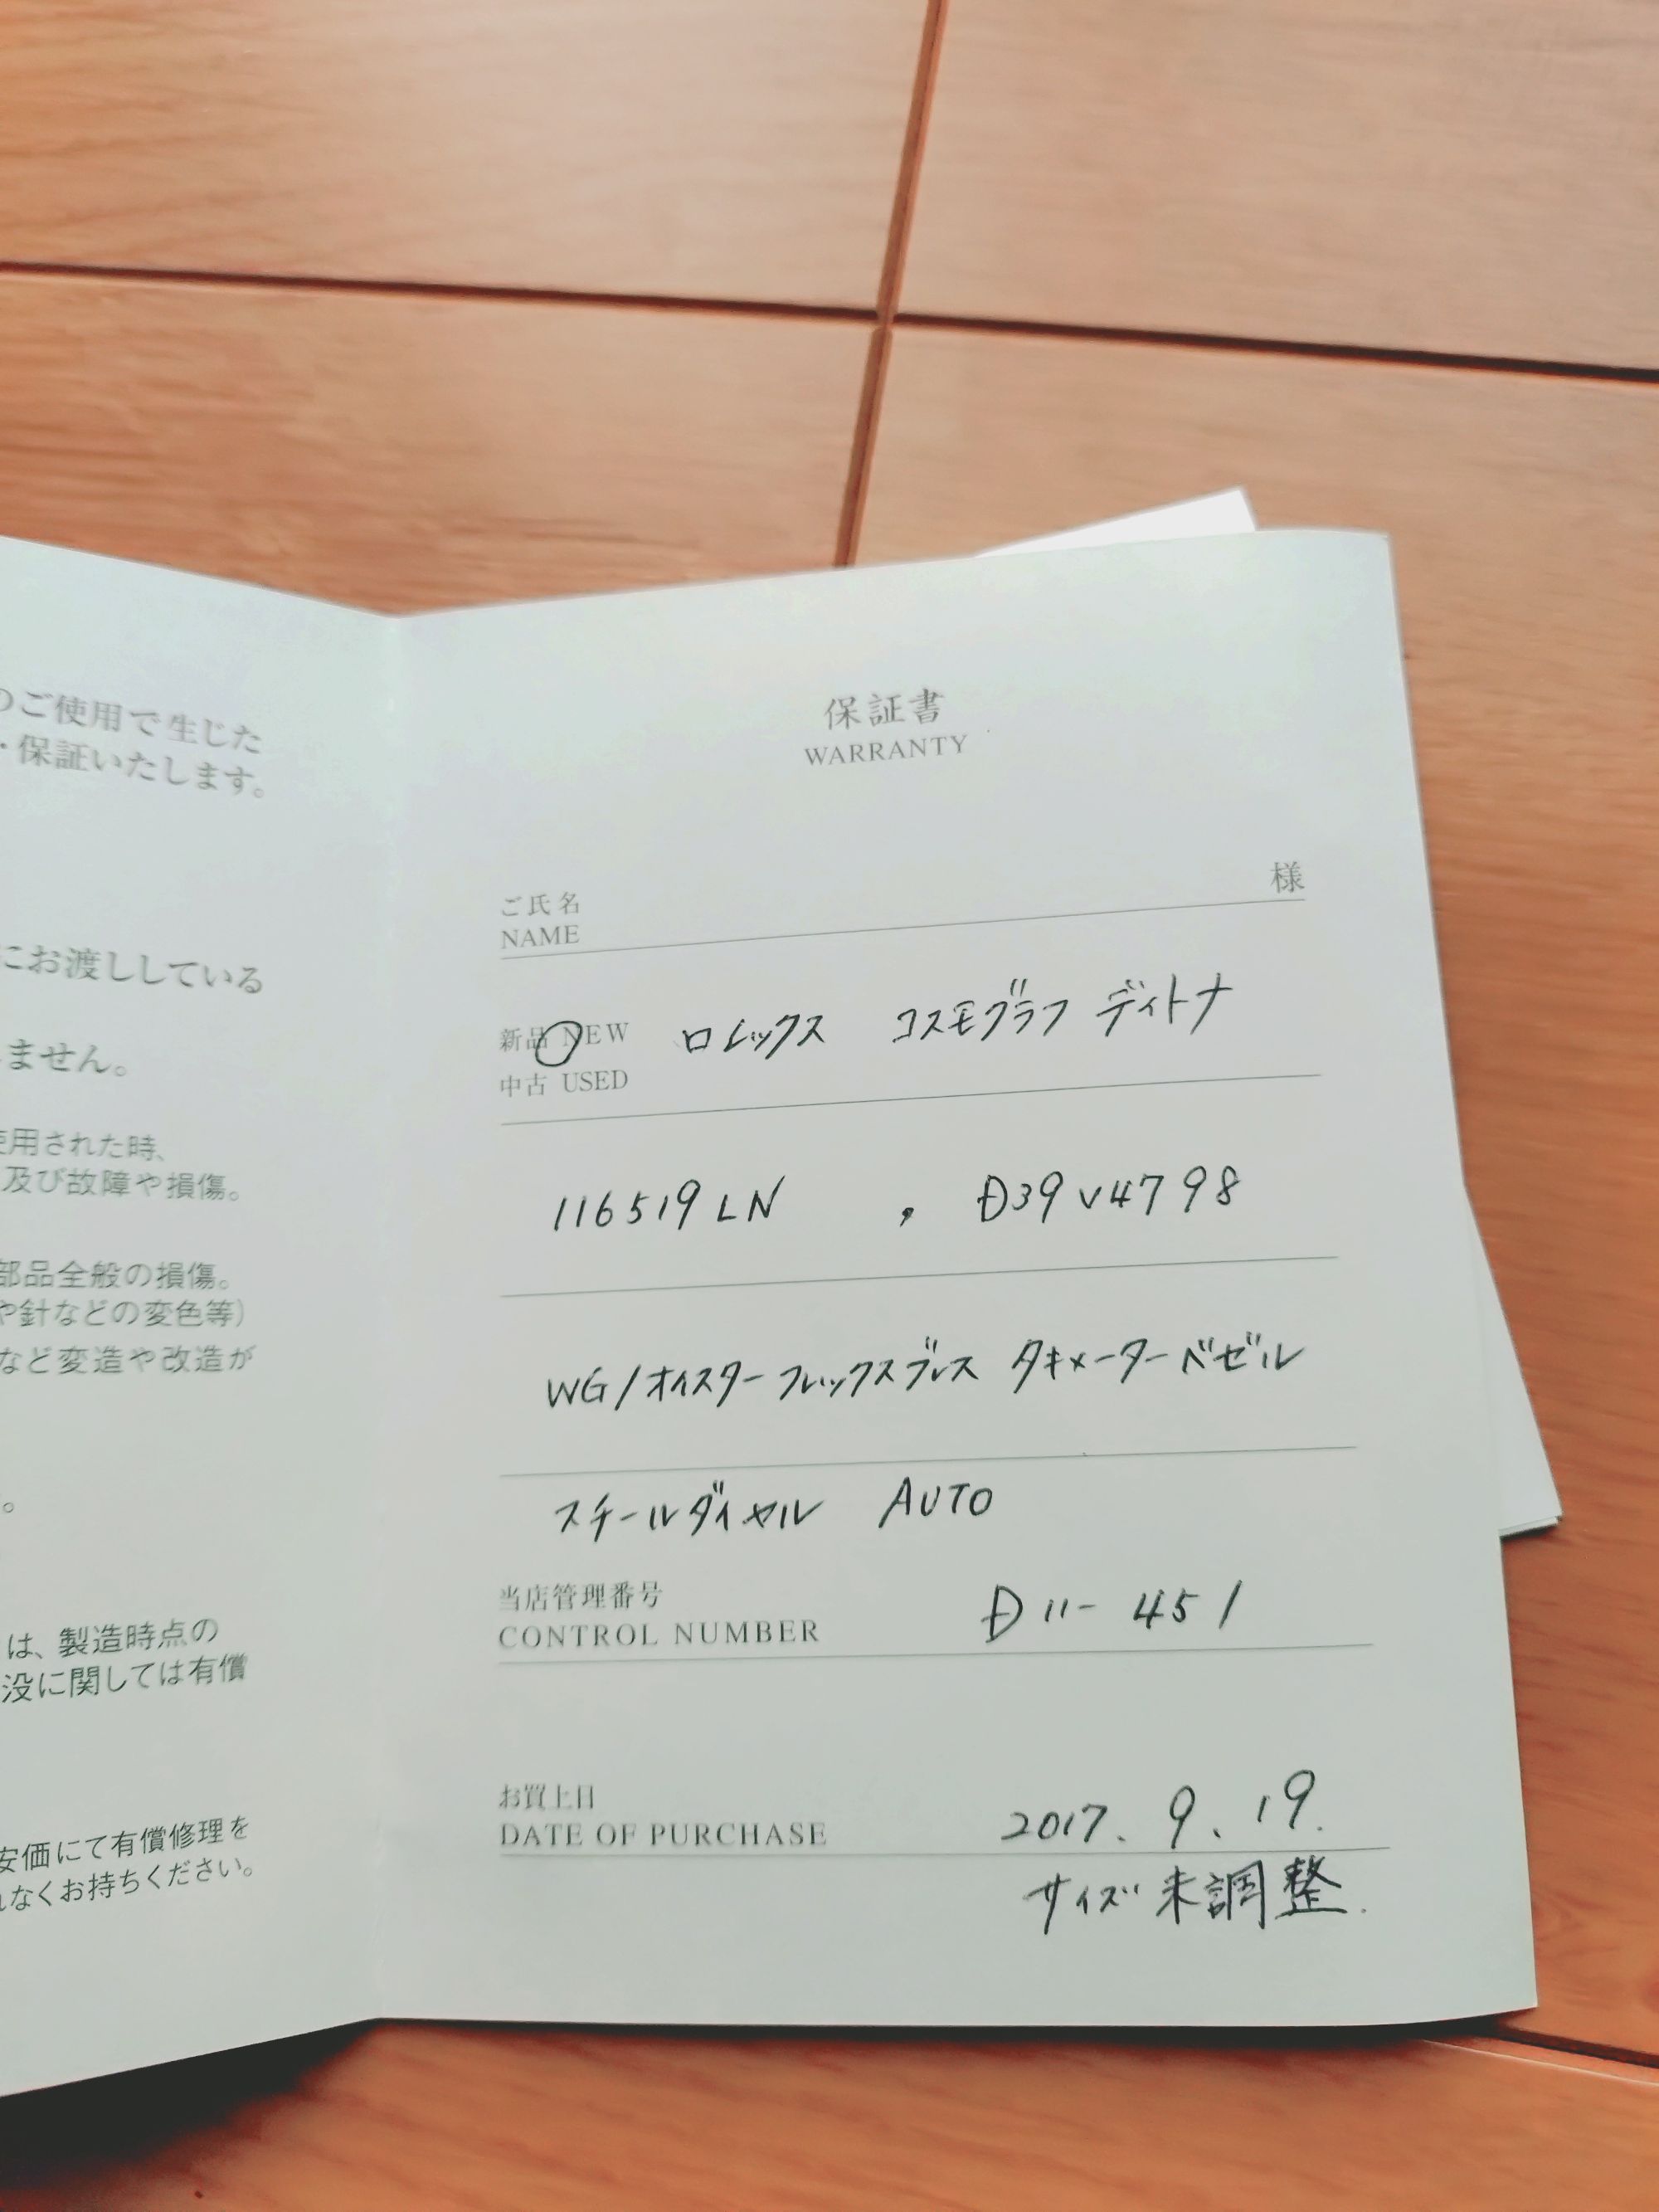 のご使用で生じた
・保証いたします。
にお渡ししている
ません。
使用された時、
及び故障や損傷。
部品全般の損傷。
や針などの変色等)
など変造や改造が
。
は、製造時点の
没に関しては有償
安価にて有償修理を
なくお持ちください。
保証書
WARRANTY
ご氏名 様
NAME
新品 NEW ロレックス コスモグラフ ディトナ
中古 USED
116519LN , D39V4798
WG/オイスターフレックスブレス タキメーターベゼル
スチールダイヤル AUTO
当店管理番号
CONTROL NUMBER D11-451
お買上日
DATE OF PURCHASE 2017.9.19.
サイズ未調整.